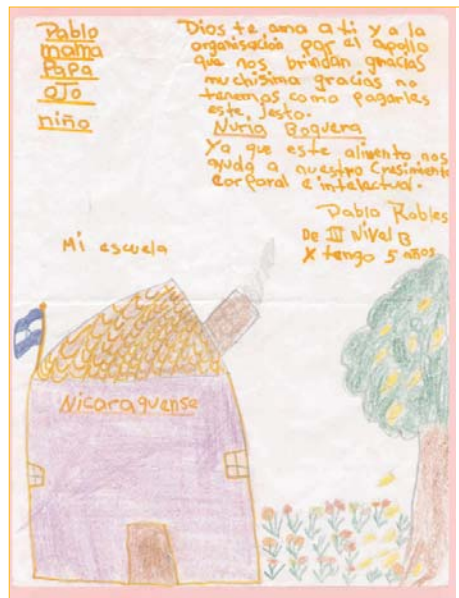 Pablo
mama
Papa
ojo
niño
Dios te ama a ti y a la
organisación por el apollo
que nos brindan gracias
muchisima gracias no
tenemos como pagarles
este Jesto.
Nuria Boquera
Ya que este alimento nos
ayuda a nuestro Cresimiento
corporal e intelectual.
Pablo Robles
De III Nivel B
X tengo 5 años
Mi escuela
Nicaraguense